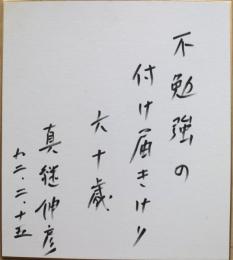 不勉強の
付け届きけり
六十歳
真継伸彦
九二・二・十五